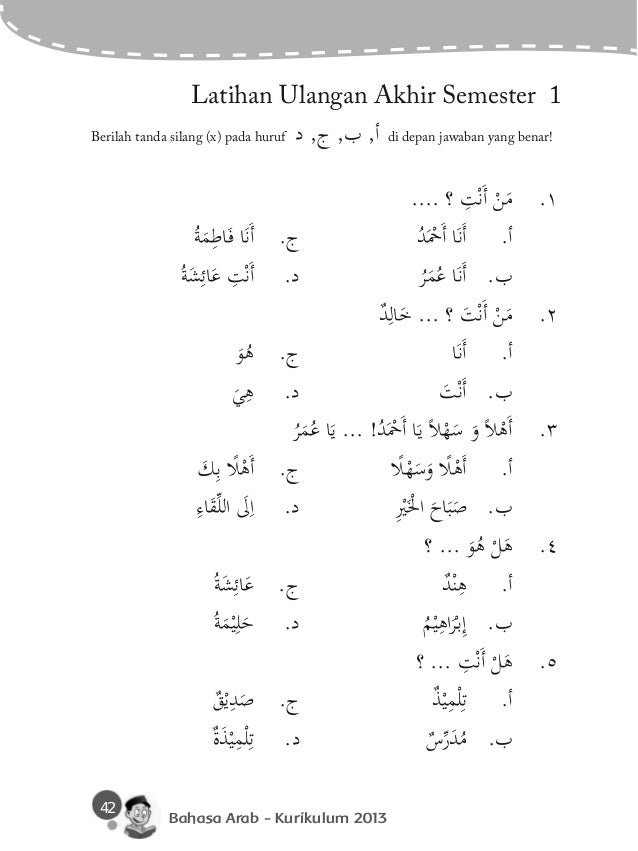 Latihan Ulangan Akhir Semester 1
Berilah tanda silang (x) pada huruf أ, ب, ج, د di depan jawaban yang benar!
١. مَنْ أَنْتِ ؟ ....
أ. أَنَا أَحْمَدُ ج. أَنَا فَاطِمَةُ
ب. أَنَا عُمَرُ د. أَنْتِ عَائِشَةُ
٢. مَنْ أَنْتَ ؟ ... خَالِدٌ
أ. أَنَا ج. هُوَ
ب. أَنْتَ د. هِيَ
٣. أَهْلاً وَ سَهْلاً يَا أَحْمَدُ! ... يَا عُمَرُ
أ. أَهْلًا وَسَهْلًا ج. أَهْلًا بِكَ
ب. صَبَاحَ الْخَيْرِ د. اِلَى اللِّقَاءِ
٤. هَلْ هُوَ ... ؟
أ. هِنْدٌ ج. عَائِشَةُ
ب. إِبْرَاهِيْمُ د. حَلِيْمَةُ
٥. هَلْ أَنْتِ ... ؟
أ. تِلْمِيْذٌ ج. صَدِيْقٌ
ب. مُدَرِّسٌ د. تِلْمِيْذَةٌ
42
Bahasa Arab - Kurikulum 2013